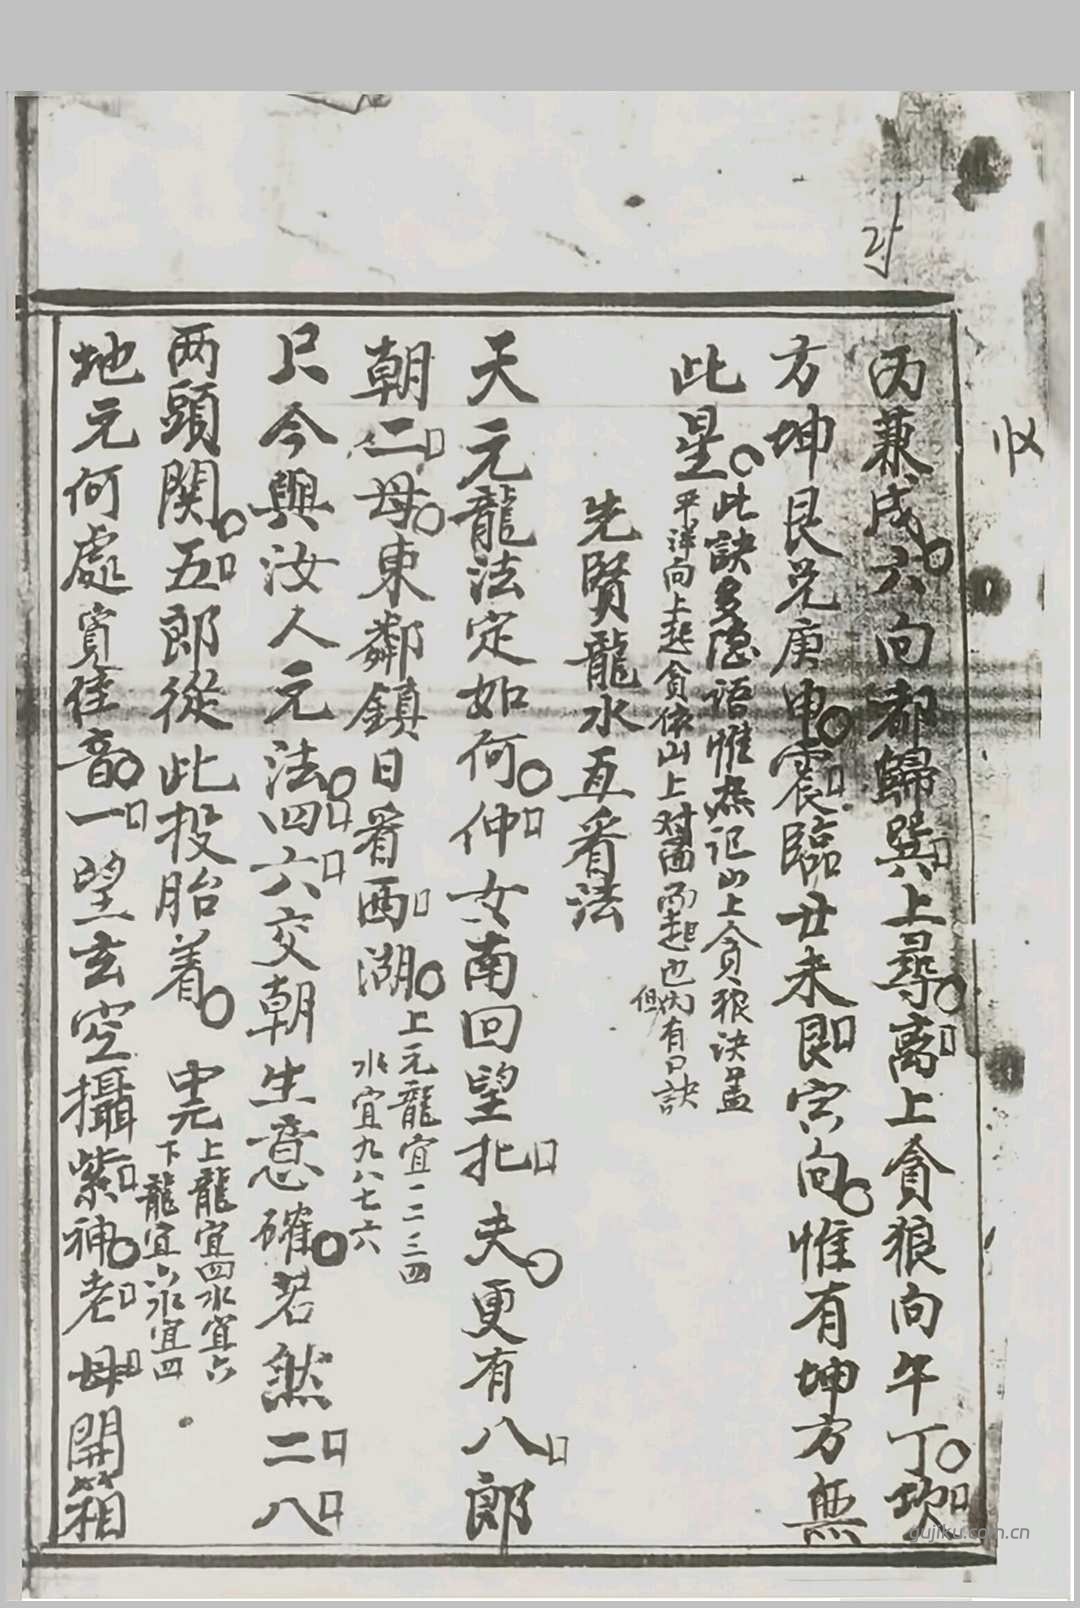 丙兼戌六向都歸巽上尋離上貪狼向午丁坎
方坤艮兌庚申震臨丑未艮寅向惟有坤方無
此星
此訣多隐语惟熟记山上貪狼决盖
平洋向上起貪依山上对面而起也但內有口訣
先賢龍水互看法
天元龍法定如何仲女南回望北夫更有八郎
朝二母東鄰鎮日看西湖
上元龍宜一二三四
水宜九八七六
只今與汝人元法四六交朝生意確若然二八
兩頭関五郎從此投胎着
中元
上龍宜四水宜六
下龍宜六水宜四
地元何處寛佳音一望玄空攝紫神老母開箱
gujiku.com.cn